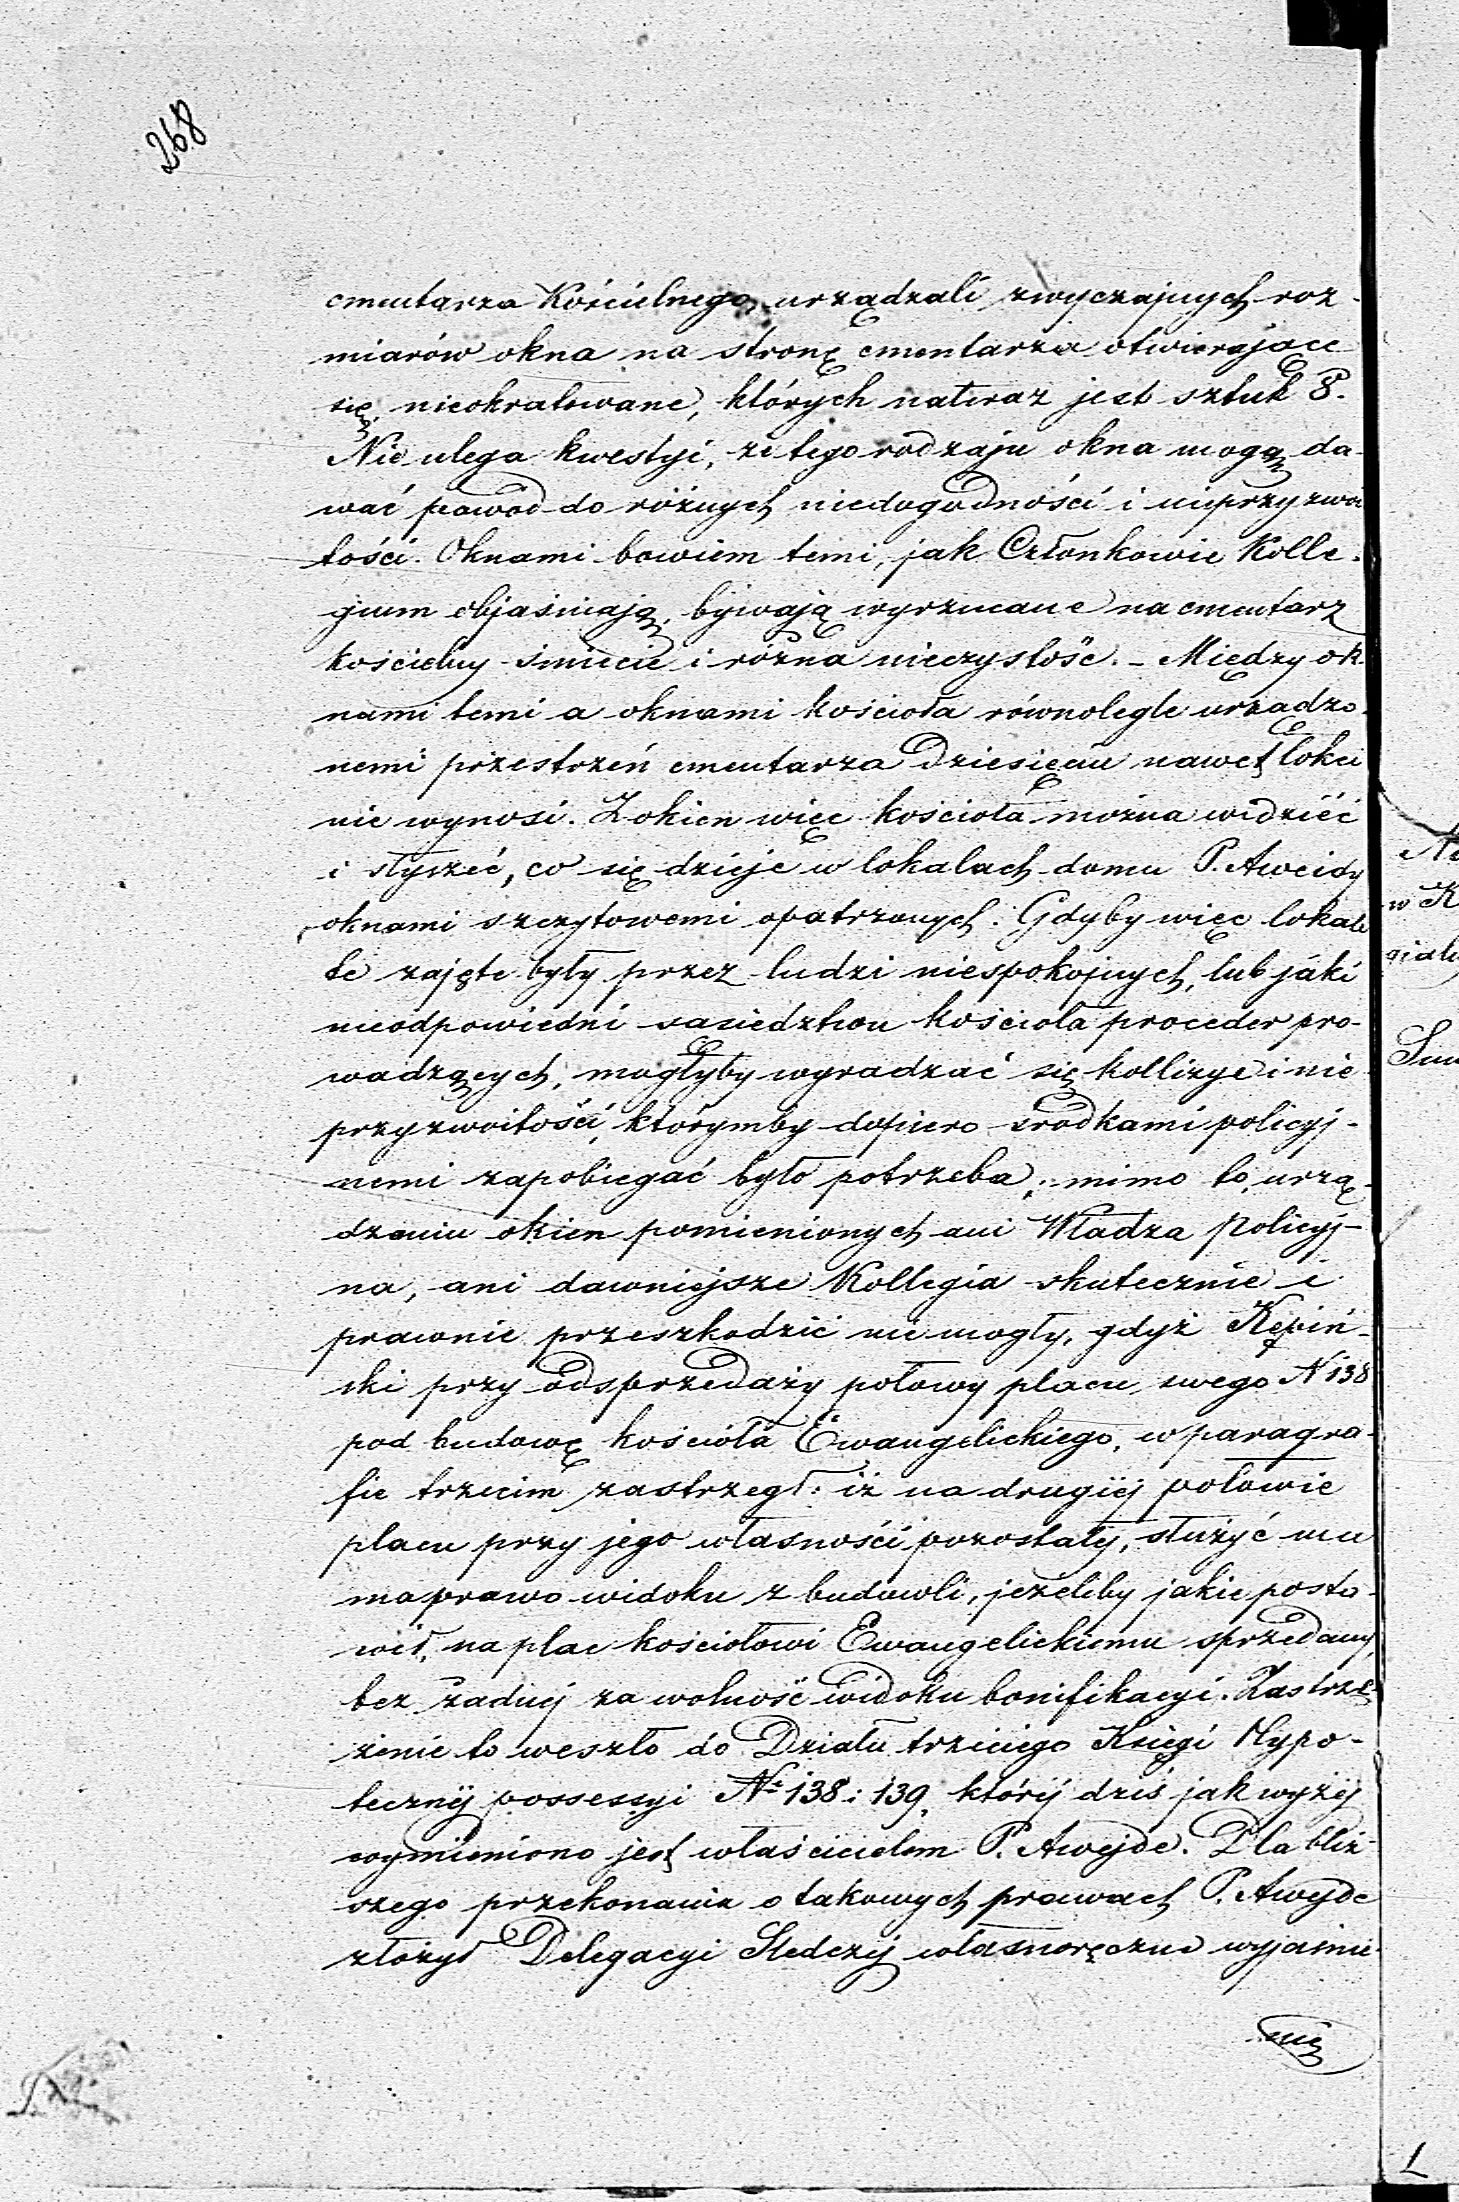 268
cmentarza Kościelnego urządzali zwyczajnych roz-
miarów okna na stronę cmentarza otwierające
się nieokratowane, których nateraz jest sztuk 8.
Nie ulega kwestyi, że tego rodzaju okna mogą da-
wać powód do różnych niedogodności i nieprzyzwoi
tości. Oknami bowiem temi, jak Członkowie Kolle-
gium objaśniają, bywają wyrzucane na cmentarz
kościelny śmiecie i różna nieczystość. – Między ok-
nami temi a oknami kościoła równolegle urządzo-
nemi przestrzeń cmentarza Dziesięciu nawet łokci
nie wynosi. Z okien więc kościoła można widzieć
i słyszeć, co się dzieje w lokalach domu P. Aweidy
oknami szczytowemi opatrzonych. Gdyby więc lokale
te zajęte były przez ludzi niespokojnych, lub jaki
nieodpowiedni sąsiedztwu kościoła proceder pro-
wadzących, mogłyby wyradzać się kollizye i nie
przyzwoitości, którymby dopiero środkami policyj-
nemi zapobiegać było potrzeba; mimo to, urzą-
dzeniu okien pomienionych ani Władza Policyj-
na, ani dawniejsze Kollegia skutecznie i
prawnie przeszkodzić nie mogły, gdyż Kępiń-
ski przy odsprzedaży połowy placu swego N 138
pod budowę kościoła Ewangelickiego, w paragra-
fie trzecim zastrzegł: iż na drugiej połowie
placu przy jego własności pozostałej, służyć mu
ma prawo widoku z budowli, jeżeliby jakie posta-
wił, na plac kościołowi Ewangelickiemu sprzedany,
bez żadnej za wolność widoku bonifikacyi. Zastrze-
żenie to weszło do Działu trzeciego Księgi Hypo-
tecznej possessyi Nº 138 i 139, której dziś jak wyżej
wymieniono jest właścicielem P. Awejde. Dla bliż-
szego przekonania o takowych prawach P. Awejde
złożył Delegacyi Śledczej własnoręczne wyjaśnie-
nie
w K